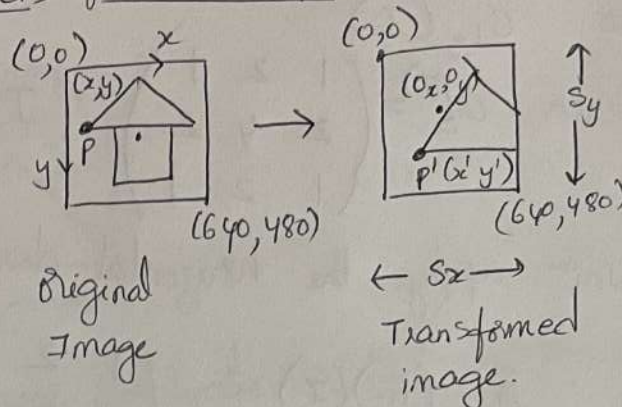 (0,0) x
(x,y)
P
y
(640,480)
original
Image
(0,0)
(0x,0y)
p'(x' y')
(640,480)
Sy
← Sx →
Transformed
image.